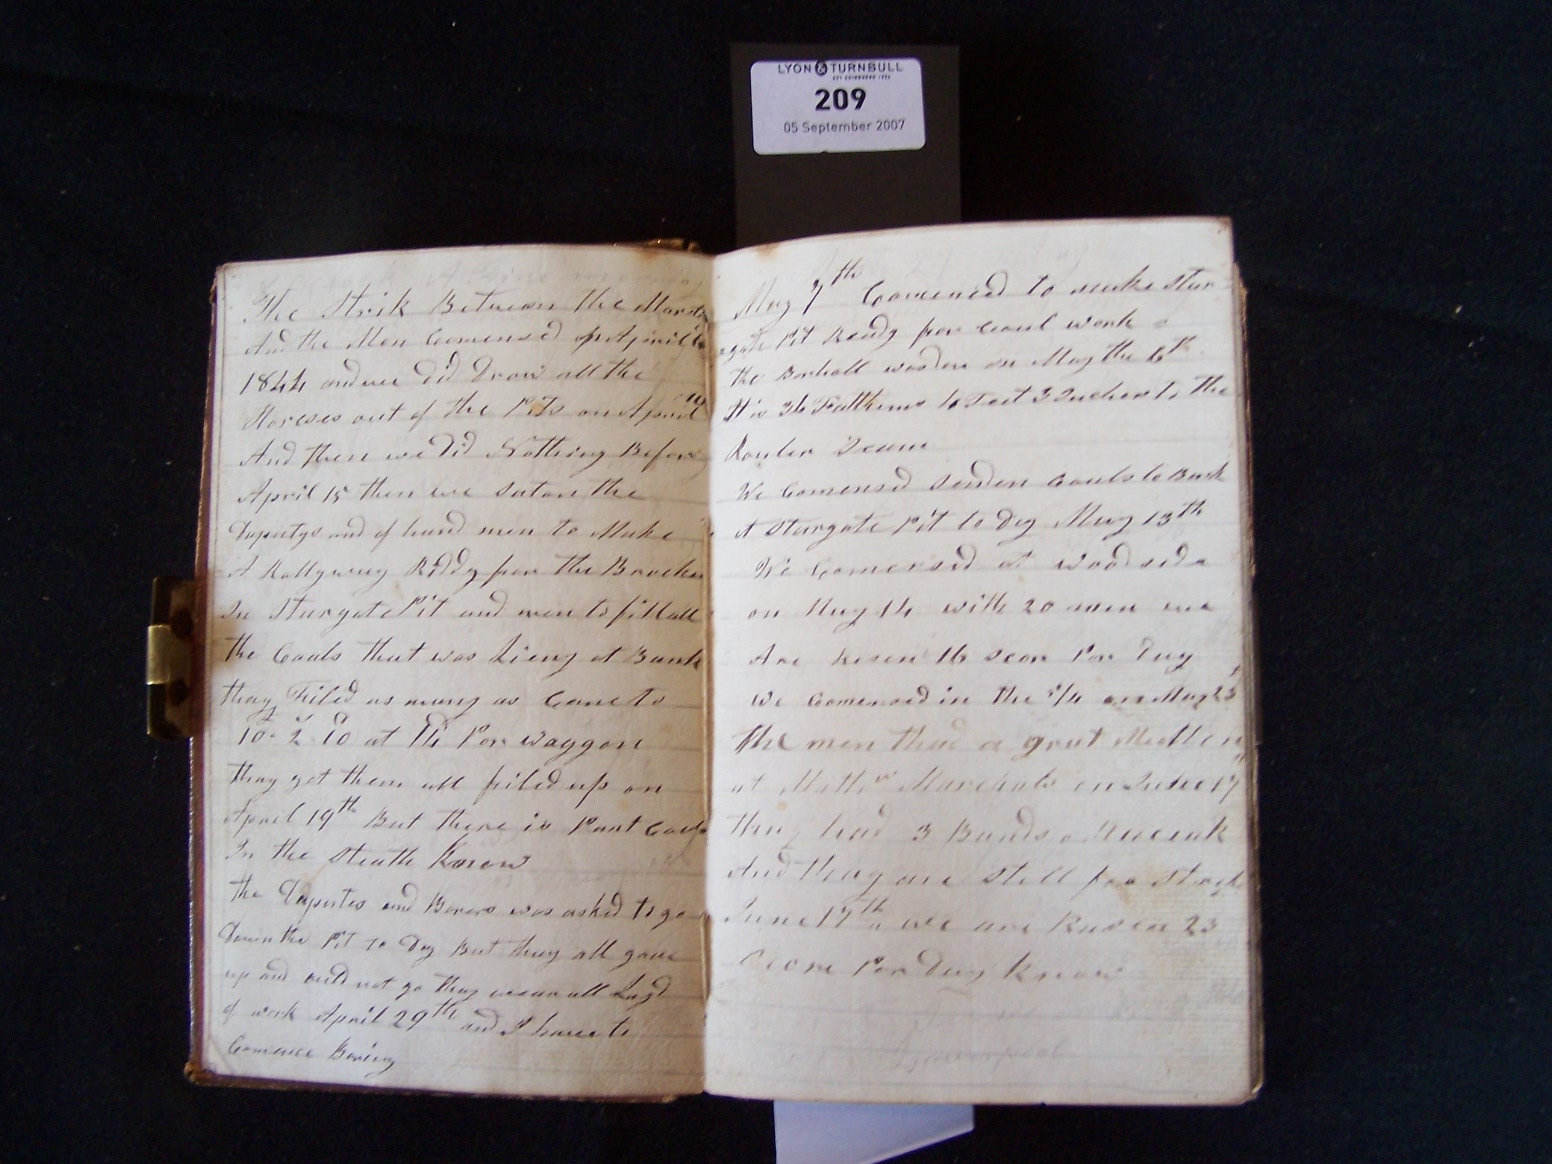 LYON & TURNBULL
209
05 September 2007
The Strik Between the
And the Men Comensed April
1844 and we did Draw all the
Horeses out of the Pits on April
And then we did Nothing Before
April 15 then we sat on the
Daputys and of hand men to Make
A Rollyway Riddy for the
In Stargate Pit and men to fill all
the Coals that was Lieng at Bank
thay Filed as many as Came to
10 2 10 at Per waggon
thay got them all filed up on
April 19th But there is
In the Heath know
the Daputes and Borers was asked to go
Down the Pit to Day But thay all gave
up and not go thay all Layd
of work April 29th and I have to
Comence Boring
May 7th Comenced to make Star
gate Pit Ready for Coal work
the Borhall was on May the 6th
It is 36 Fathems 4 Feet 3 Inches to the
Seam
We Comensed Senden Coals to Bank
At Stargate Pit to Day May 13th
We Comensed at Woodside
on May 14 with 20 men we
Are Resen 16 scor Per Day
We Comensed in the 3/4 on May 23
The men thad a grat Meetten
at in June 17
thay had 3 Bands a
And thay are Still for Strik
June 17th we are Rasen 23
Score Per Day know